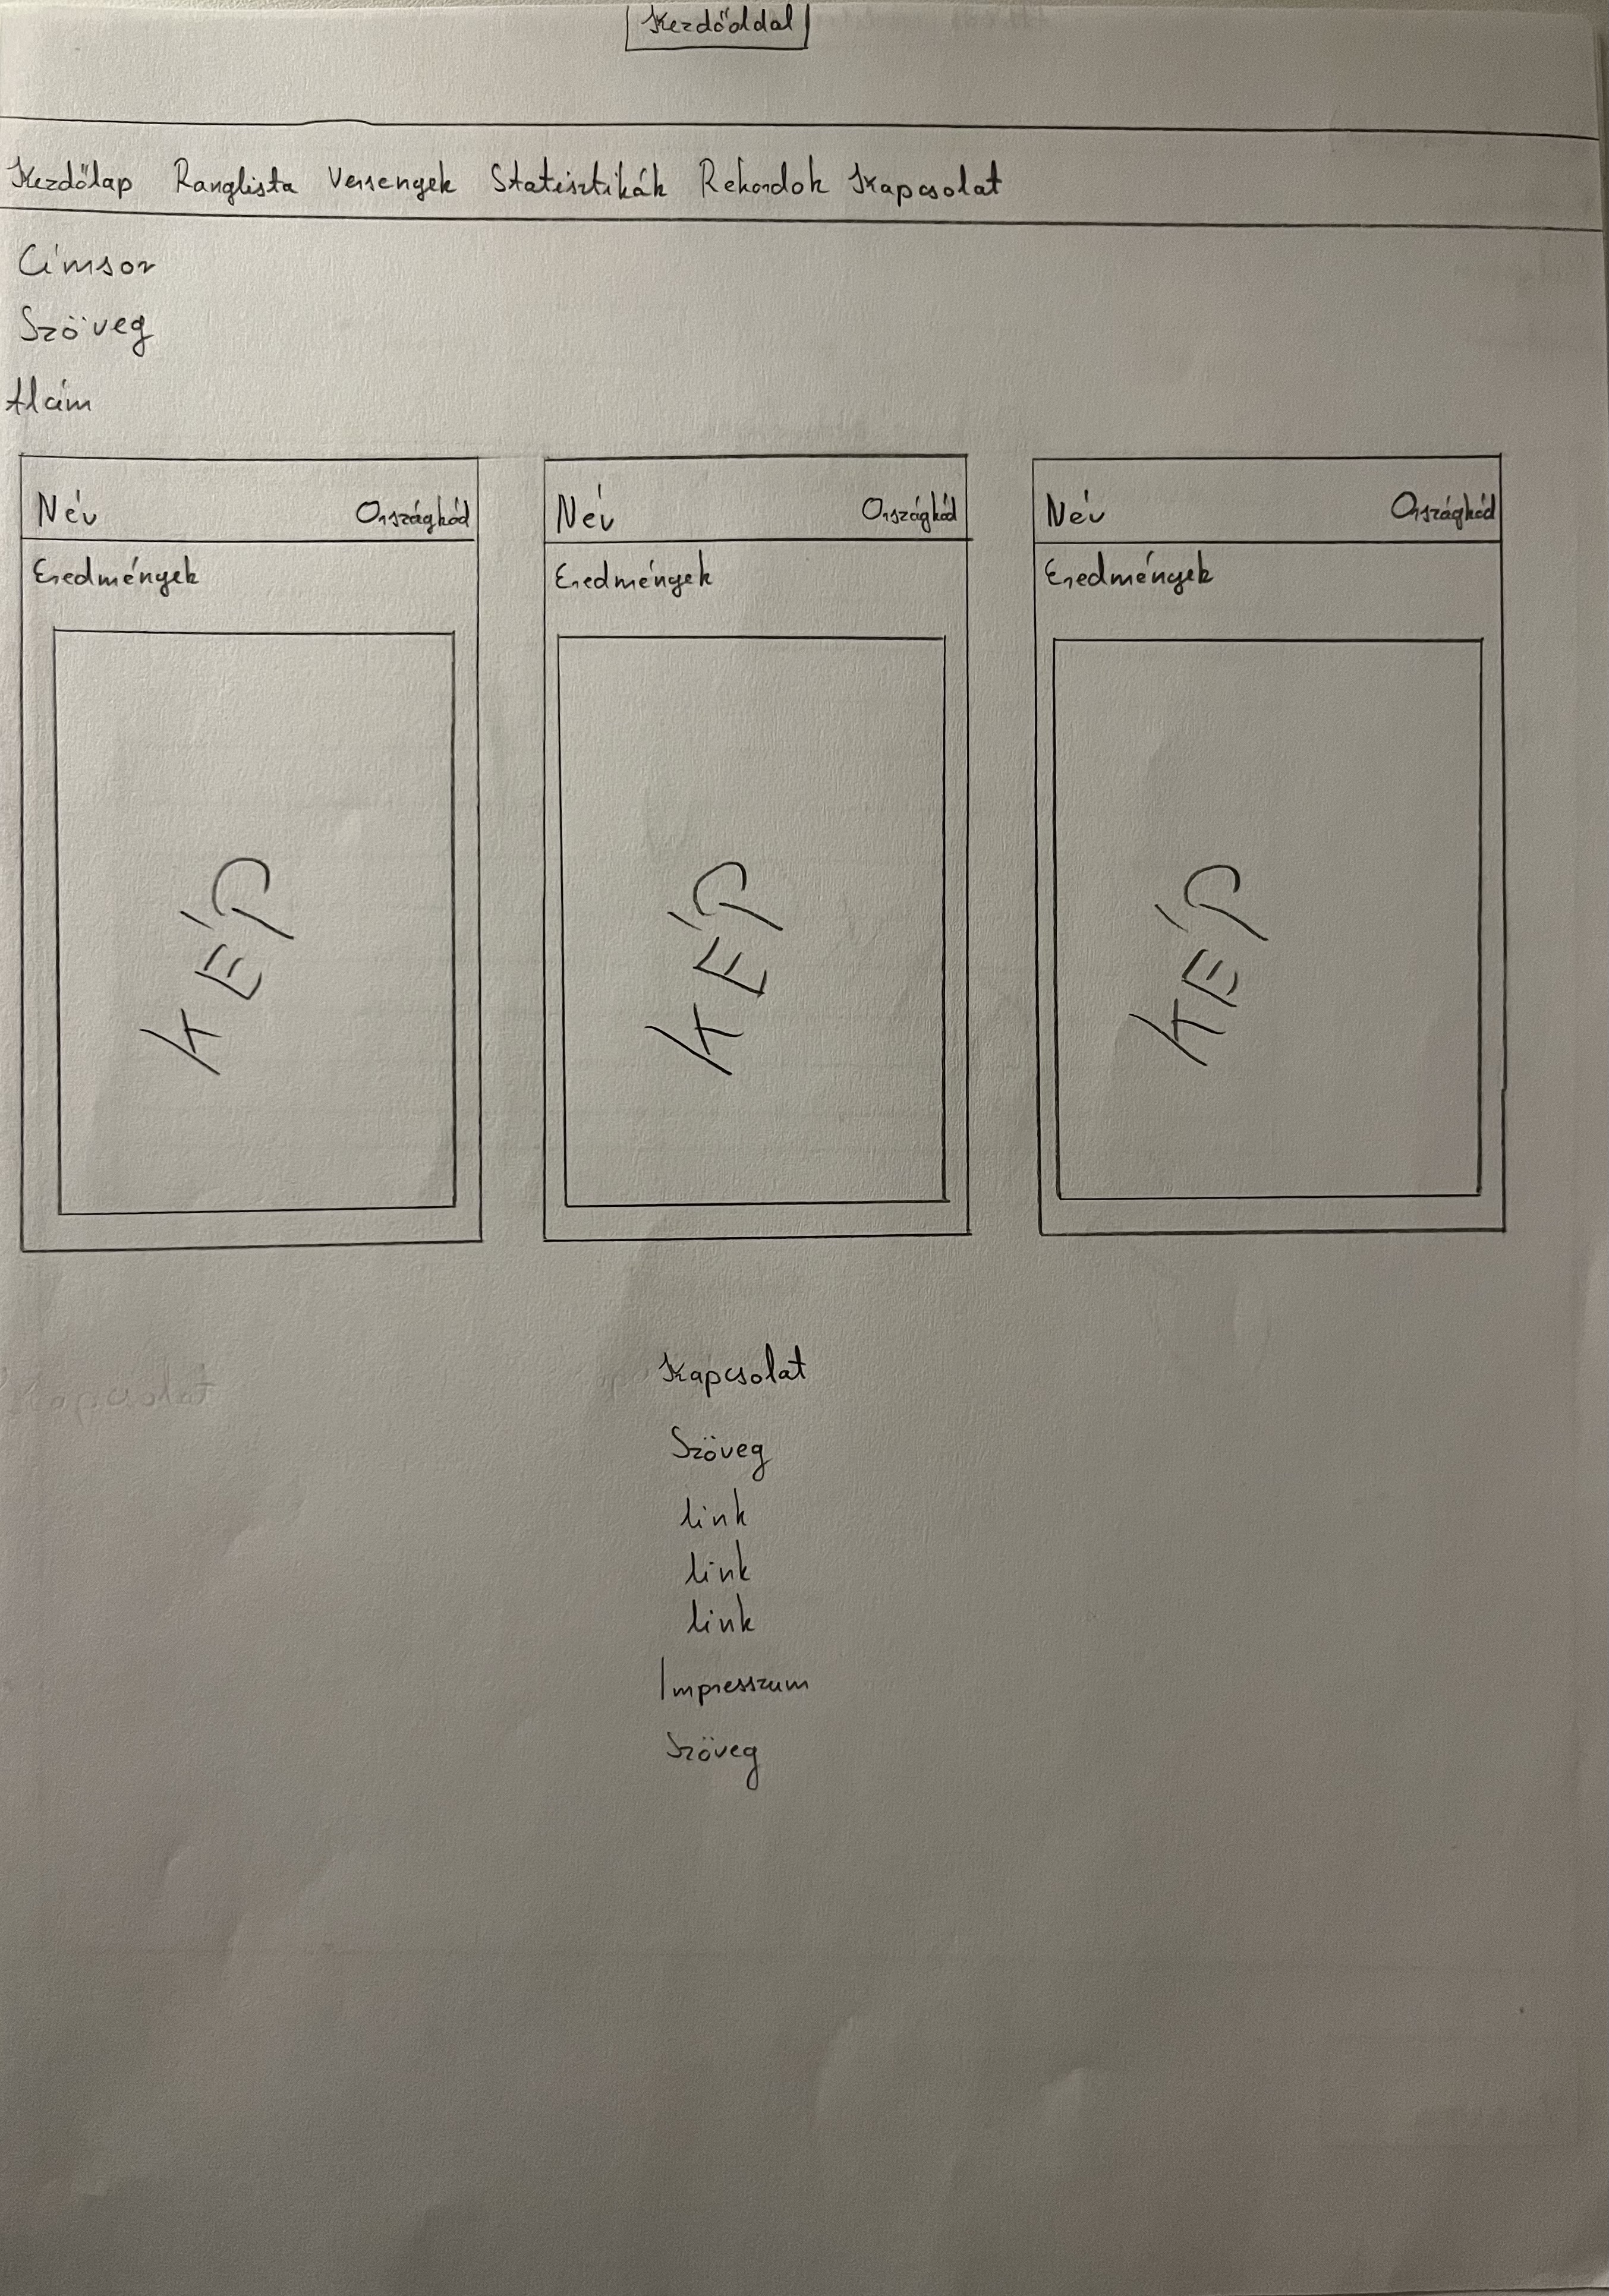 Kezdőoldal
Kezdőlap Ranglista Versenyek Statisztikák Rekordok Kapcsolat
Címsor
Szöveg
Név Országkód Név Országkód Név Országkód
Eredmények Eredmények Eredmények
KÉP KÉP KÉP
Kapcsolat
Szöveg
link
link
link
Impresszum
Szöveg